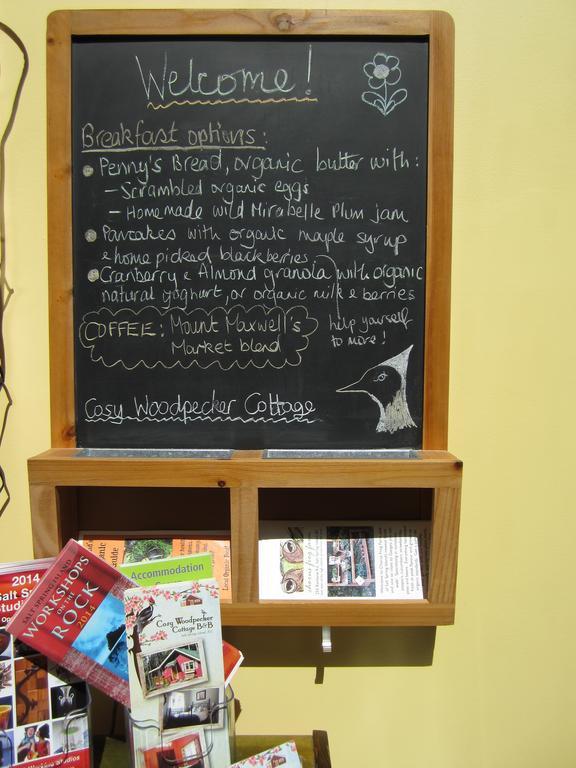 Welcome!
Breakfast options:
• Penny's Bread, organic butter with:
– Scrambled organic eggs
– Homemade wild Mirabelle Plum jam
• Pancakes with organic maple syrup
& home picked blackberries.
• Cranberry & Almond granola with organic
natural yoghurt, or organic milk & berries
help yourself
to more!
COFFEE: Mount Maxwell's
Market blend
Cosy Woodpecker Cottage
2014
Salt S
Studi
SALT SPRING ISLAND
WORKSHOPS
ON THE
ROCK
2014
Accommodation
Cosy Woodpecker
Cottage B&B